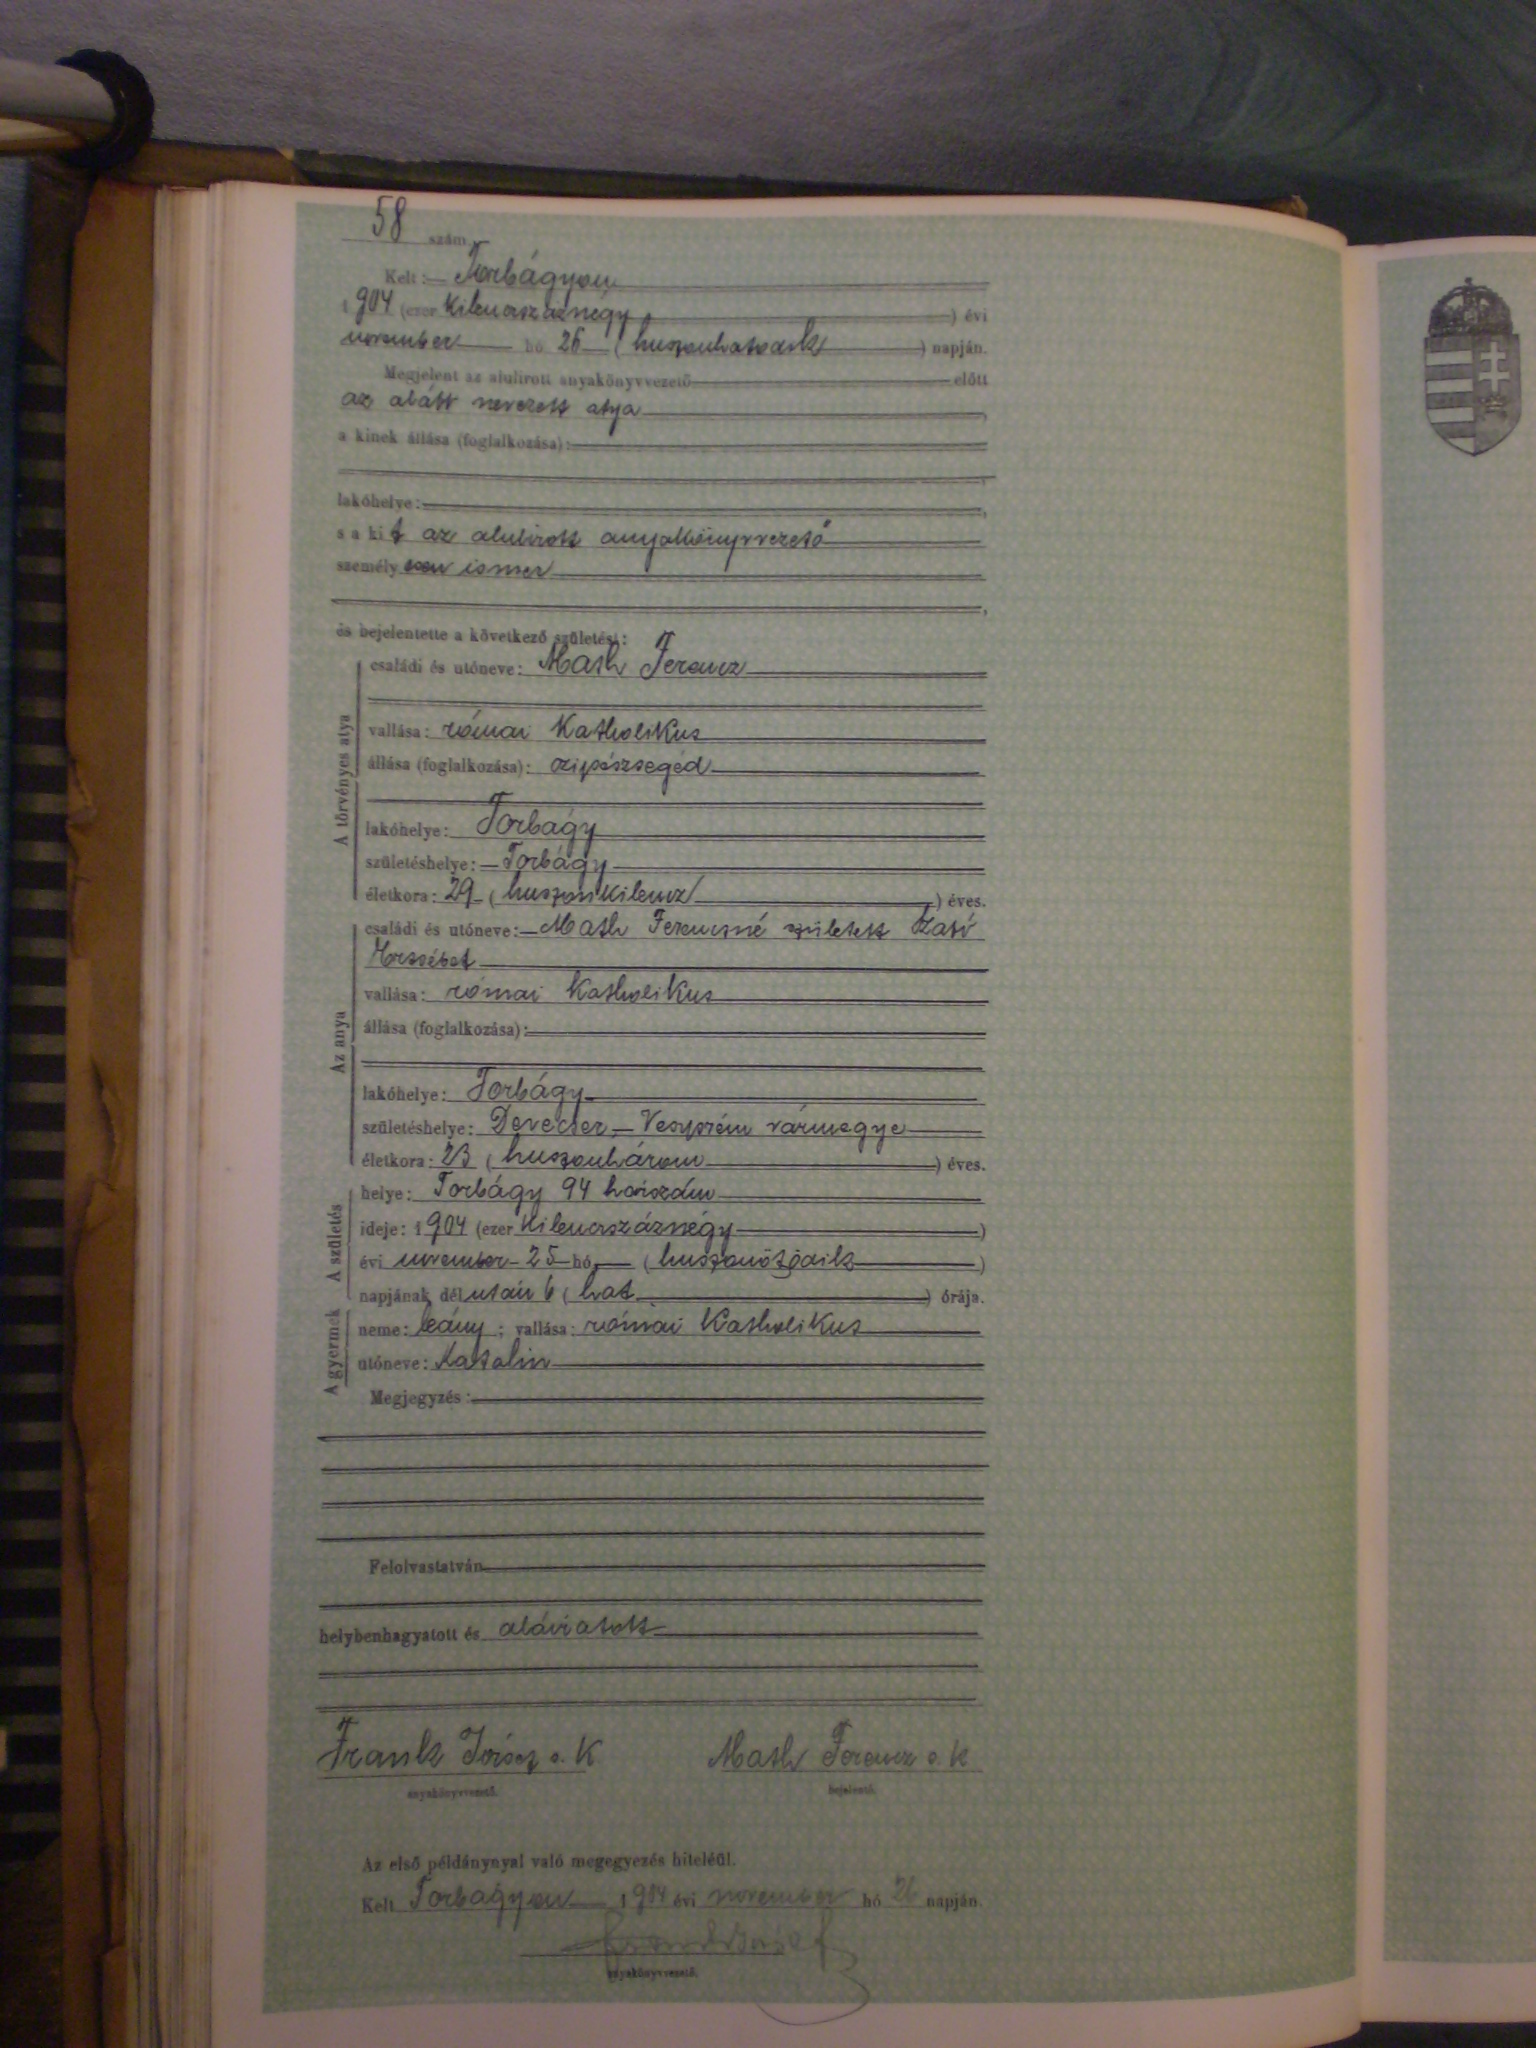 58 szám
Kelt: Torbágyon
1904 (ezer kilencszáznégy) évi
november hó 26 (huszonhatodik) napján.
Megjelent az alulirott anyakönyvvezető előtt
az alább nevezett atya,
a kinek állása (foglalkozása):
lakóhelye:
s a kit az alulirott anyakönyvvezető
személyesen ismer
és bejelentette a következő születést:
A törvényes atya
családi és utóneve: Math Ferencz
vallása: római katholikus
állása (foglalkozása): czipészsegéd
lakóhelye: Torbágy
születéshelye: Torbágy
életkora: 29 (huszonkilencz) éves.
Az anya
családi és utóneve: Math Ferenczné született
Erzsébet
vallása: római katholikus
állása (foglalkozása):
lakóhelye: Torbágy
születéshelye: Devecser, Veszprém vármegye
életkora: 23 (huszonhárom) éves.
A születés
helye: Torbágy 94 házszám
ideje: 1904 (ezer kilencszáznégy)
évi november 25 hó (huszonötödik)
napjának dél után 6 (hat) órája.
A gyermek
neme: leány; vallása: római katholikus
utóneve: Katalin
Megjegyzés:
Felolvastatván
helybenhagyatott és aláiratott
Frank József s. k. Math Ferencz s. k.
anyakönyvvezető. bejelentő.
Az első példánynyal való megegyezés hiteléül.
Kelt Torbágyon 1904 évi november hó 26 napján.
anyakönyvvezető.